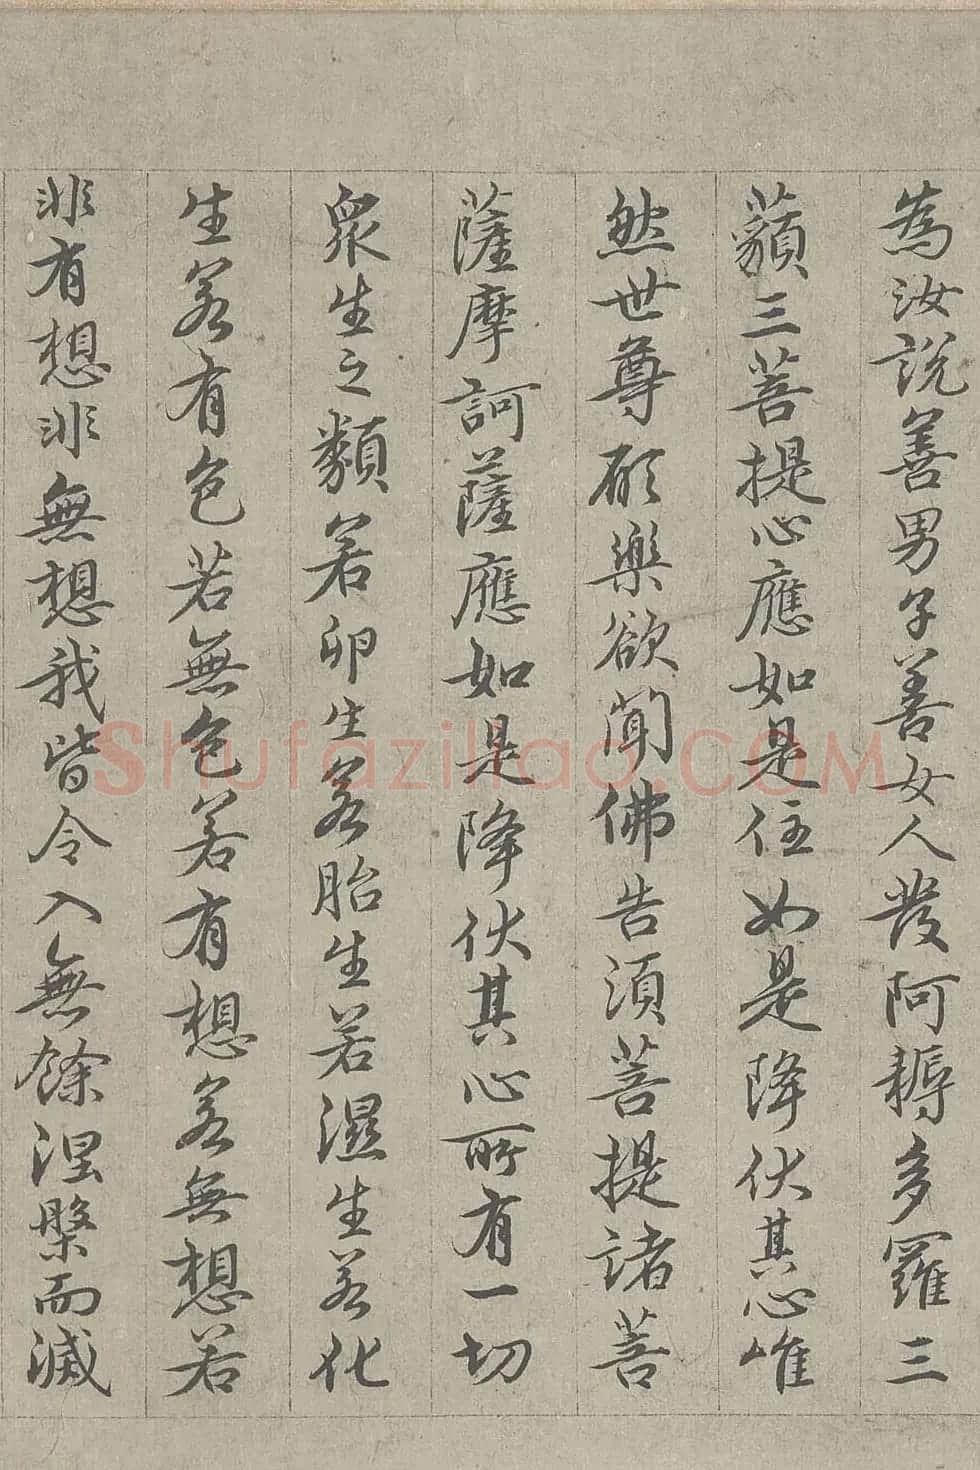 為汝說善男子善女人發阿耨多羅三
藐三菩提心應如是住如是降伏其心唯
然世尊願樂欲聞佛告須菩提諸菩
薩摩訶薩應如是降伏其心所有一切
眾生之類若卵生若胎生若濕生若化
生若有色若無色若有想若無想若
非有想非無想我皆令入無餘涅槃而滅
Shufaziliao.COM